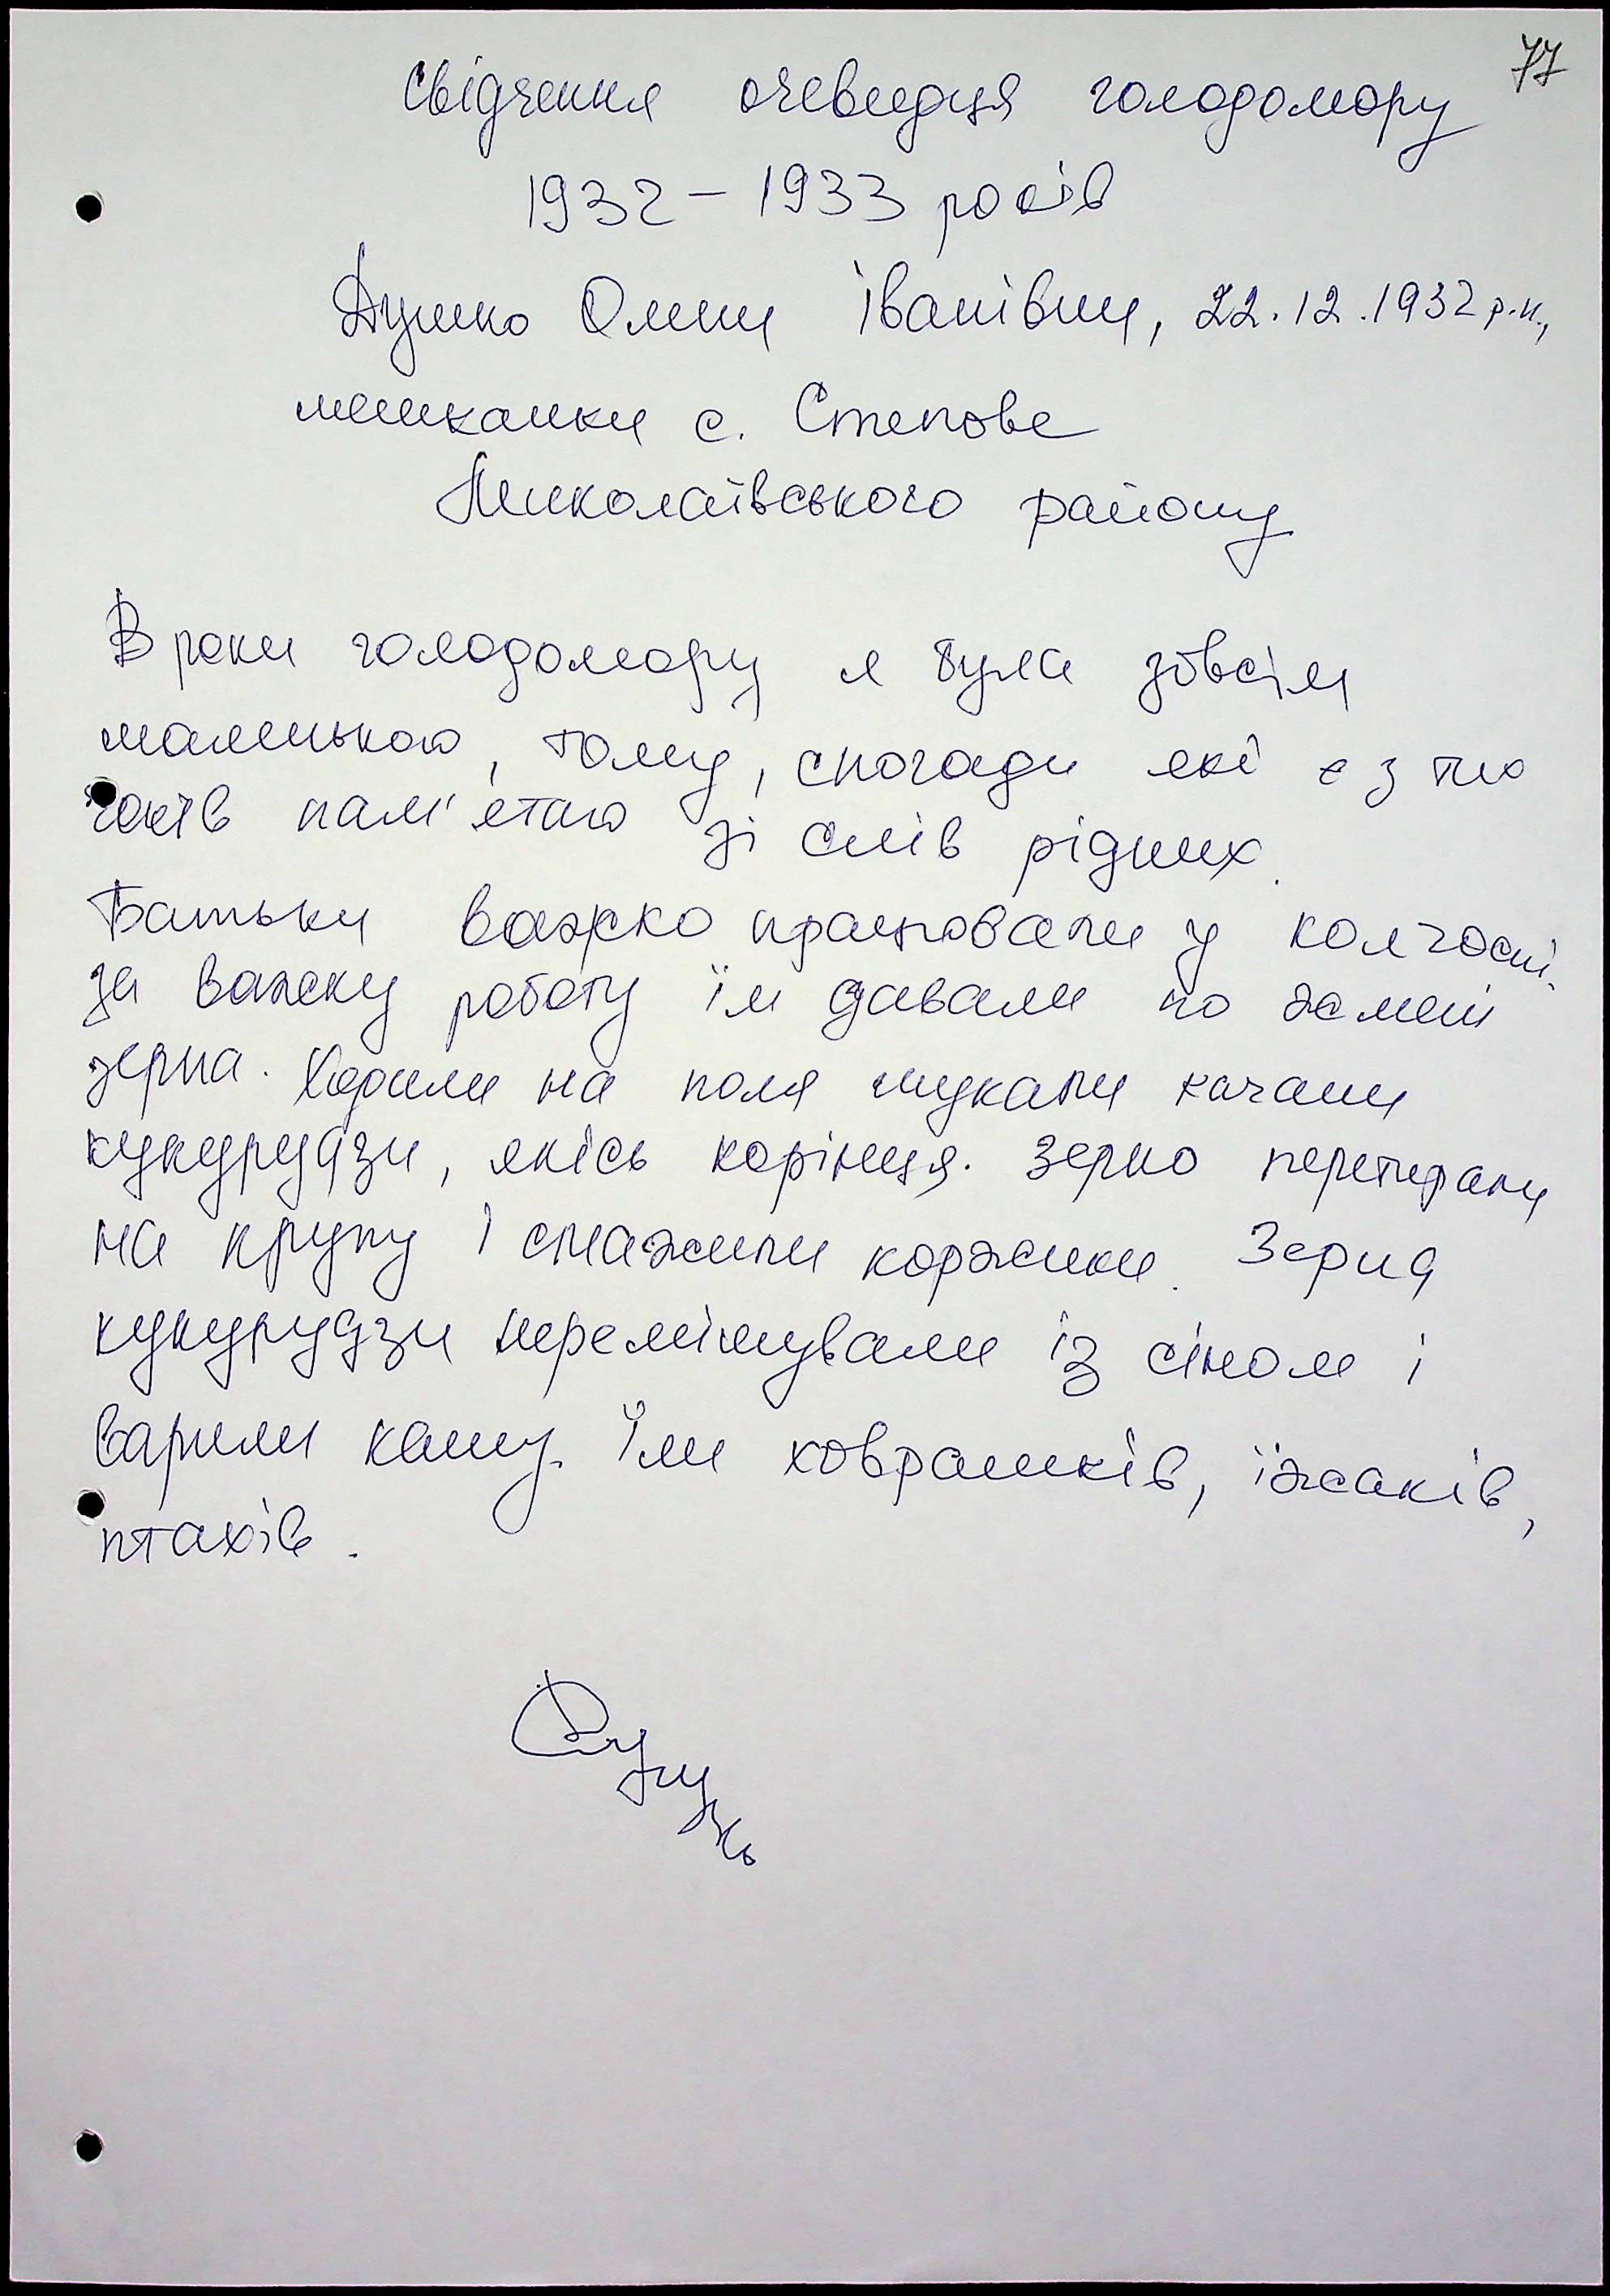 77
Свідчення очевидця голодомору
1932 – 1933 років
Душко Олени Іванівни, 22.12.1932 р.н.,
мешканки с. Степове
Миколаївського району
В роки голодомору я була зовсім
маленькою, тому, спогади які є з тих
часів пам'ятаю зі слів рідних.
Батьки важко працювали у колгоспі.
за важку роботу їм давали по жмені
зерна. Ходили на поля шукали качани
кукурудзи, якісь корінця. Зерно перетирали
на крупу і смажили коржики. Зерна
кукурудзи перемішували із сіном і
варили кашу. Їли ховрашків, їжаків,
птахів.